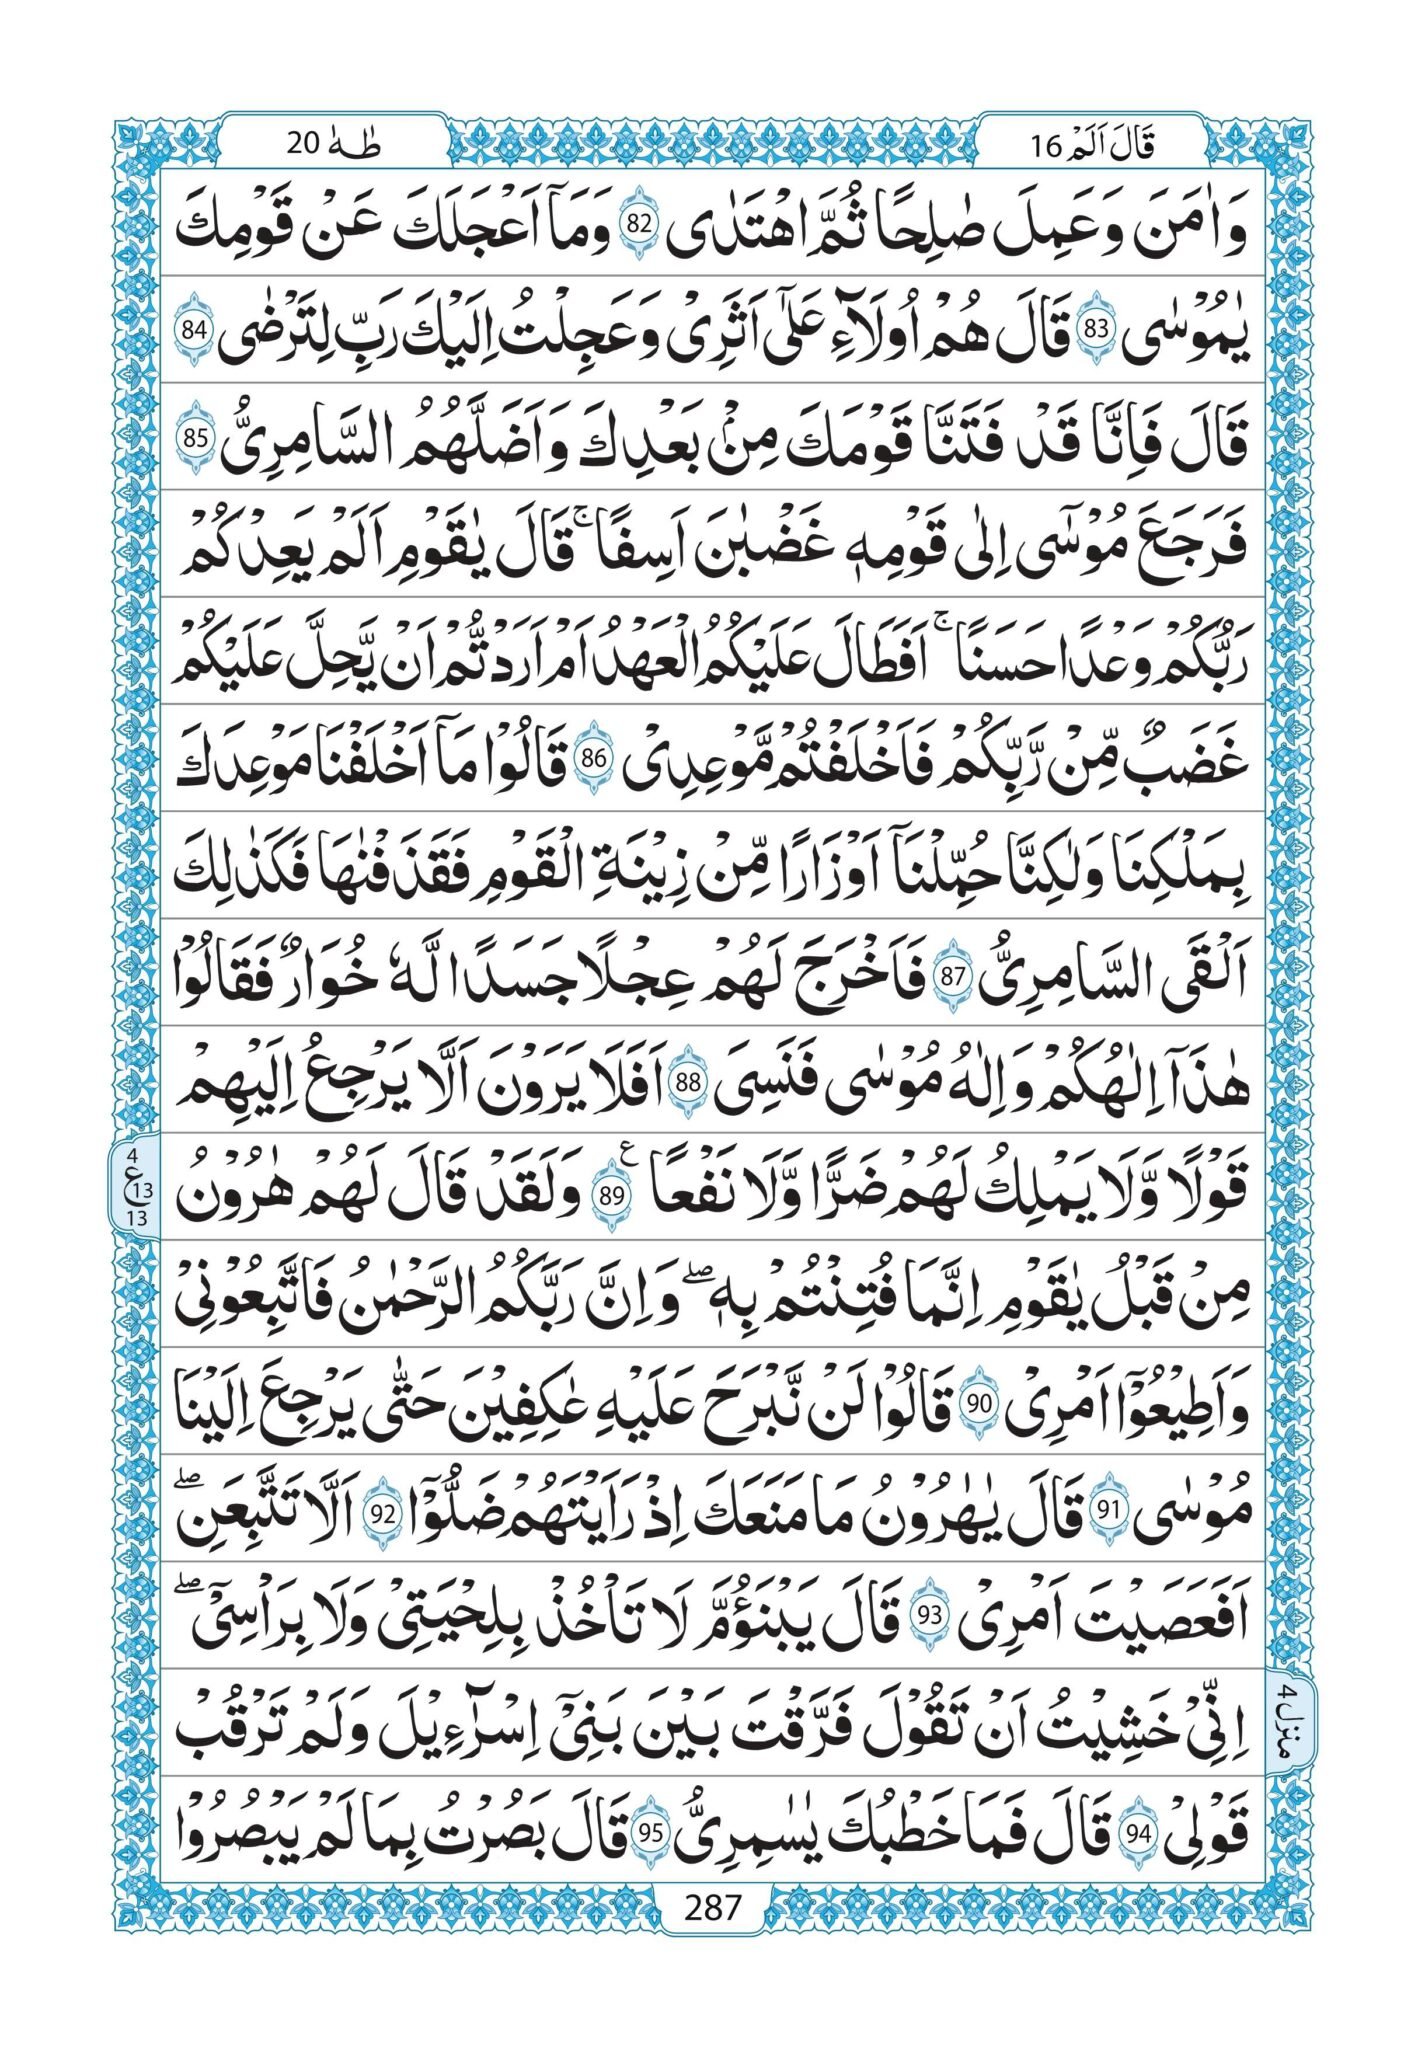 قَالَ اَلَمْ 16
طٰهٰ 20
وَاٰمَنَ وَعَمِلَ صٰلِحًا ثُمَّ اهْتَدٰى 82 وَمَاۤ اَعْجَلَكَ عَنْ قَوْمِكَ
يٰمُوْسٰى 83 قَالَ هُمْ اُولَآءِ عَلٰٓى اَثَرِىْ وَعَجِلْتُ اِلَيْكَ رَبِّ لِتَرْضٰى 84
قَالَ فَاِنَّا قَدْ فَتَنَّا قَوْمَكَ مِنْۢ بَعْدِكَ وَاَضَلَّهُمُ السَّامِرِىُّ 85
فَرَجَعَ مُوْسٰٓى اِلٰى قَوْمِهٖ غَضْبٰنَ اَسِفًا ۚ قَالَ يٰقَوْمِ اَلَمْ يَعِدْكُمْ
رَبُّكُمْ وَعْدًا حَسَنًا ۚ اَفَطَالَ عَلَيْكُمُ الْعَهْدُ اَمْ اَرَدْتُّمْ اَنْ يَّحِلَّ عَلَيْكُمْ
غَضَبٌ مِّنْ رَّبِّكُمْ فَاَخْلَفْتُمْ مَّوْعِدِىْ 86 قَالُوْا مَاۤ اَخْلَفْنَا مَوْعِدَكَ
بِمَلْكِنَا وَلٰكِنَّا حُمِّلْنَاۤ اَوْزَارًا مِّنْ زِيْنَةِ الْقَوْمِ فَقَذَفْنٰهَا فَكَذٰلِكَ
اَلْقَى السَّامِرِىُّ 87 فَاَخْرَجَ لَهُمْ عِجْلًا جَسَدًا لَّهٗ خُوَارٌ فَقَالُوْا
هٰذَاۤ اِلٰهُكُمْ وَاِلٰهُ مُوْسٰى فَنَسِىَ 88 اَفَلَا يَرَوْنَ اَلَّا يَرْجِعُ اِلَيْهِمْ
قَوْلًا وَّلَا يَمْلِكُ لَهُمْ ضَرًّا وَّلَا نَفْعًا ع 89 وَلَقَدْ قَالَ لَهُمْ هٰرُوْنُ
4
ع 13
13
مِنْ قَبْلُ يٰقَوْمِ اِنَّمَا فُتِنْتُمْ بِهٖ ۖ وَاِنَّ رَبَّكُمُ الرَّحْمٰنُ فَاتَّبِعُوْنِىْ
وَاَطِيْعُوْۤا اَمْرِىْ 90 قَالُوْا لَنْ نَّبْرَحَ عَلَيْهِ عٰكِفِيْنَ حَتّٰى يَرْجِعَ اِلَيْنَا
مُوْسٰى 91 قَالَ يٰهٰرُوْنُ مَا مَنَعَكَ اِذْ رَاَيْتَهُمْ ضَلُّوْۤا 92 اَلَّا تَتَّبِعَنِ ۖ
اَفَعَصَيْتَ اَمْرِىْ 93 قَالَ يَبْنَؤُمَّ لَا تَاْخُذْ بِلِحْيَتِىْ وَلَا بِرَاْسِىْ ۖ
اِنِّىْ خَشِيْتُ اَنْ تَقُوْلَ فَرَّقْتَ بَيْنَ بَنِىْۤ اِسْرَآءِيْلَ وَلَمْ تَرْقُبْ
منزل 4
قَوْلِىْ 94 قَالَ فَمَا خَطْبُكَ يٰسَٰمِرِىُّ 95 قَالَ بَصُرْتُ بِمَا لَمْ يَبْصُرُوْا
287